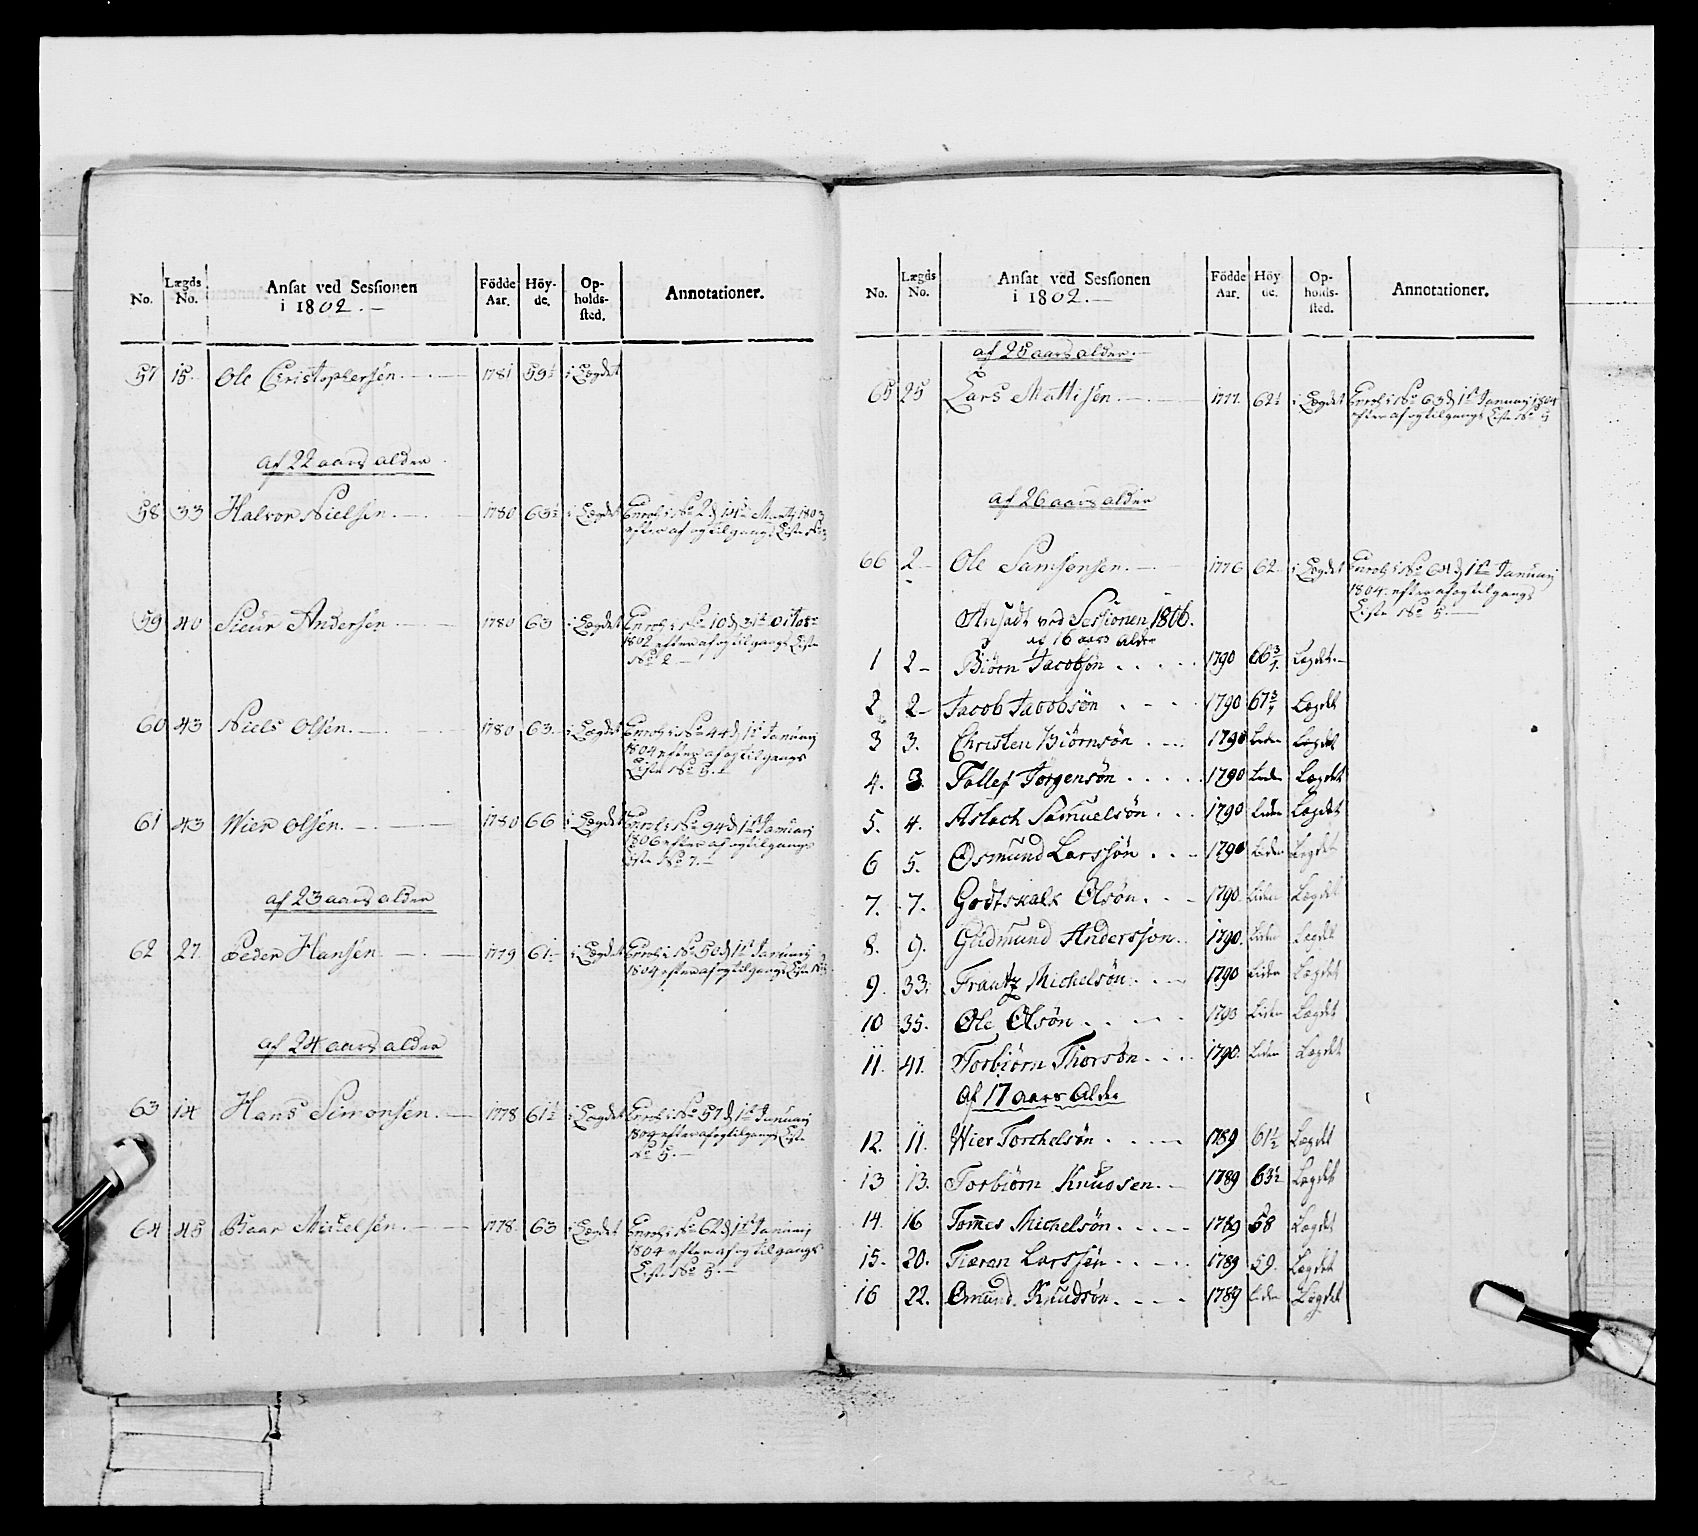 No. Lægds No. Ansat ved Sessionen i 1802. Födde Aar. Höy-de. Op-holds-sted. Annotationer.
57 15 Ole Christophersen 1781 59½ i Lægdet
af 22 aars alder
58 33 Halvor Nielsen 1780 63½ i Lægdet Enrol: i No 2 d 14de Martz 1803
efter af og tilgangs Liste No 3
59 40 Sieur Andersen 1780 63 i Lægdet Enrol: i No 10 d 31te Octobr
1802 efter af og tilgangs Liste
No 2
60 43 Niels Olsen 1780 63 i Lægdet Enrol: i No 44 d 1st Januarj
1804 efter af og tilgangs
Liste No 5
61 43 Wier Olsen 1780 66 i Lægdet Enrol: i No 94 d 1st Januarj
1806 efter af og tilgangs
Liste No 7.
af 23 aars alder
62 27 Peder Hansen 1779 61 i Lægdet Enrol: i No 50 d 1st Januarj
1804 efter af og tilgangs Liste No 5
af 24 aars alder
63 14 Hans Simonsen 1778 61½ i Lægdet Enrol: i No 57 d 1st Januarj
1804 efter af og tilgangs Liste
No 5.
64 45 Baar Michelsen 1778 63 i Lægdet Enrol: i No 62 d 1st Januarj
1804 efter af og tilgangs
Liste No 5.
No. Lægds No. Ansat ved Sessionen i 1802. Födde Aar. Höy de. Op-holds-sted. Annotationer.
af 25 aars alder
65 25 Lars Mattisen 1777 62½ i Lægdet Enrol: i No 63 d 1st Januarj 1804
efter af og tilgangs Liste No 5
af 26 aars alder
66 2 Ole Samsonsen 1776 62 i Lægdet Enrol: i No 64 d 1st Januarj
1804 efter af og tilgangs
Liste No 5
Ansadt ved Sessionen 1806.
af 16 aars Alder
1 2 Biörn Jacobsön 1790 66¾ Lægdet
2 2 Jacob Jacobsön 1790 67¾ Lægdet
3 3. Christen Biörnsön 1790 Liden Lægdet
4. 3 Tollef Jorgensön 1790 Liden Lægdet
5. 4. Aslach Samuelsön 1790 Liden Lægdet
6 5. Osmund Larssön 1790 Liden Lægdet
7. 7. Godtskalk Olsön 1790 Liden Lægdet
8. 9. Gudmund Anderssön 1790. Liden Lægdet
9 33. Frantz Michelsön 1790 Liden Lægdet
10 35. Ole Olsön 1790 Liden Lægdet
11. 41. Torbiörn Thorsön 1790. Liden Lægdet
Af 17 aars Alder
12. 11. Wier Torchelsön 1789 61½ Lægdet
13 13. Torbiörn Knudsen 1789 63½ Lægdet
14. 16 Tommes Michelsön 1789 58 Lægdet
15. 20. Tiæran Larssön 1789 59. Lægdet
16 22. Omund Knudsön 1789 Liden Lægdet